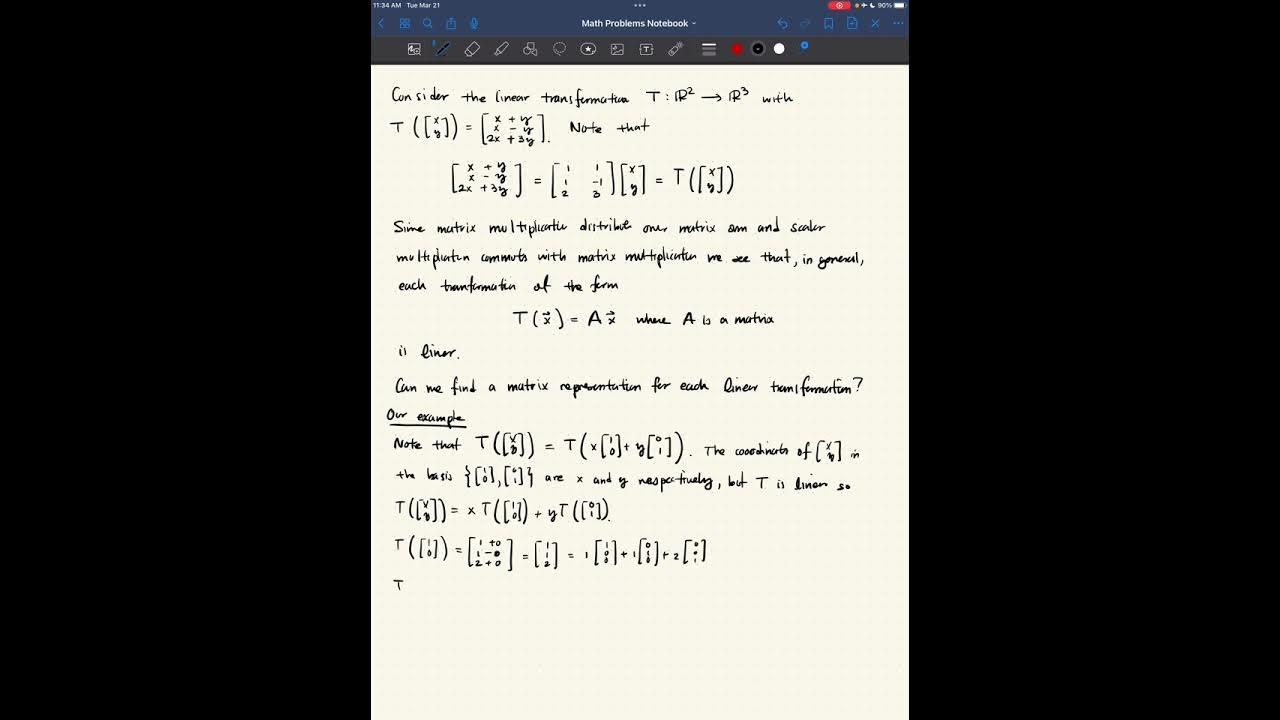 11:34 AM Tue Mar 21
90%
Math Problems Notebook
Consider the linear transformation T : ℝ² → ℝ³ with
T([x y]) = [x + y, x - y, 2x + 3y]. Note that
[x + y, x - y, 2x + 3y] = [1 1, 1 -1, 2 3][x y] = T([x y])
Since matrix multiplication distribute over matrix sum and scalar
multiplication commuts with matrix multiplication we see that, in general,
each transformation of the form
T(x⃗) = Ax⃗ where A is a matrix
is linear.
Can we find a matrix representation for each linear transformation?
Our example
Note that T([x y]) = T(x[1 0] + y[0 1]). The coordinats of [x y] in
the basis {[1 0], [0 1]} are x and y respectively, but T is linear so
T([x y]) = xT([1 0]) + yT([0 1]).
T([1 0]) = [1+0, 1-0, 2+0] = [1 1 2] = 1[1 0 0] + 1[0 1 0] + 2[0 0 1]
T